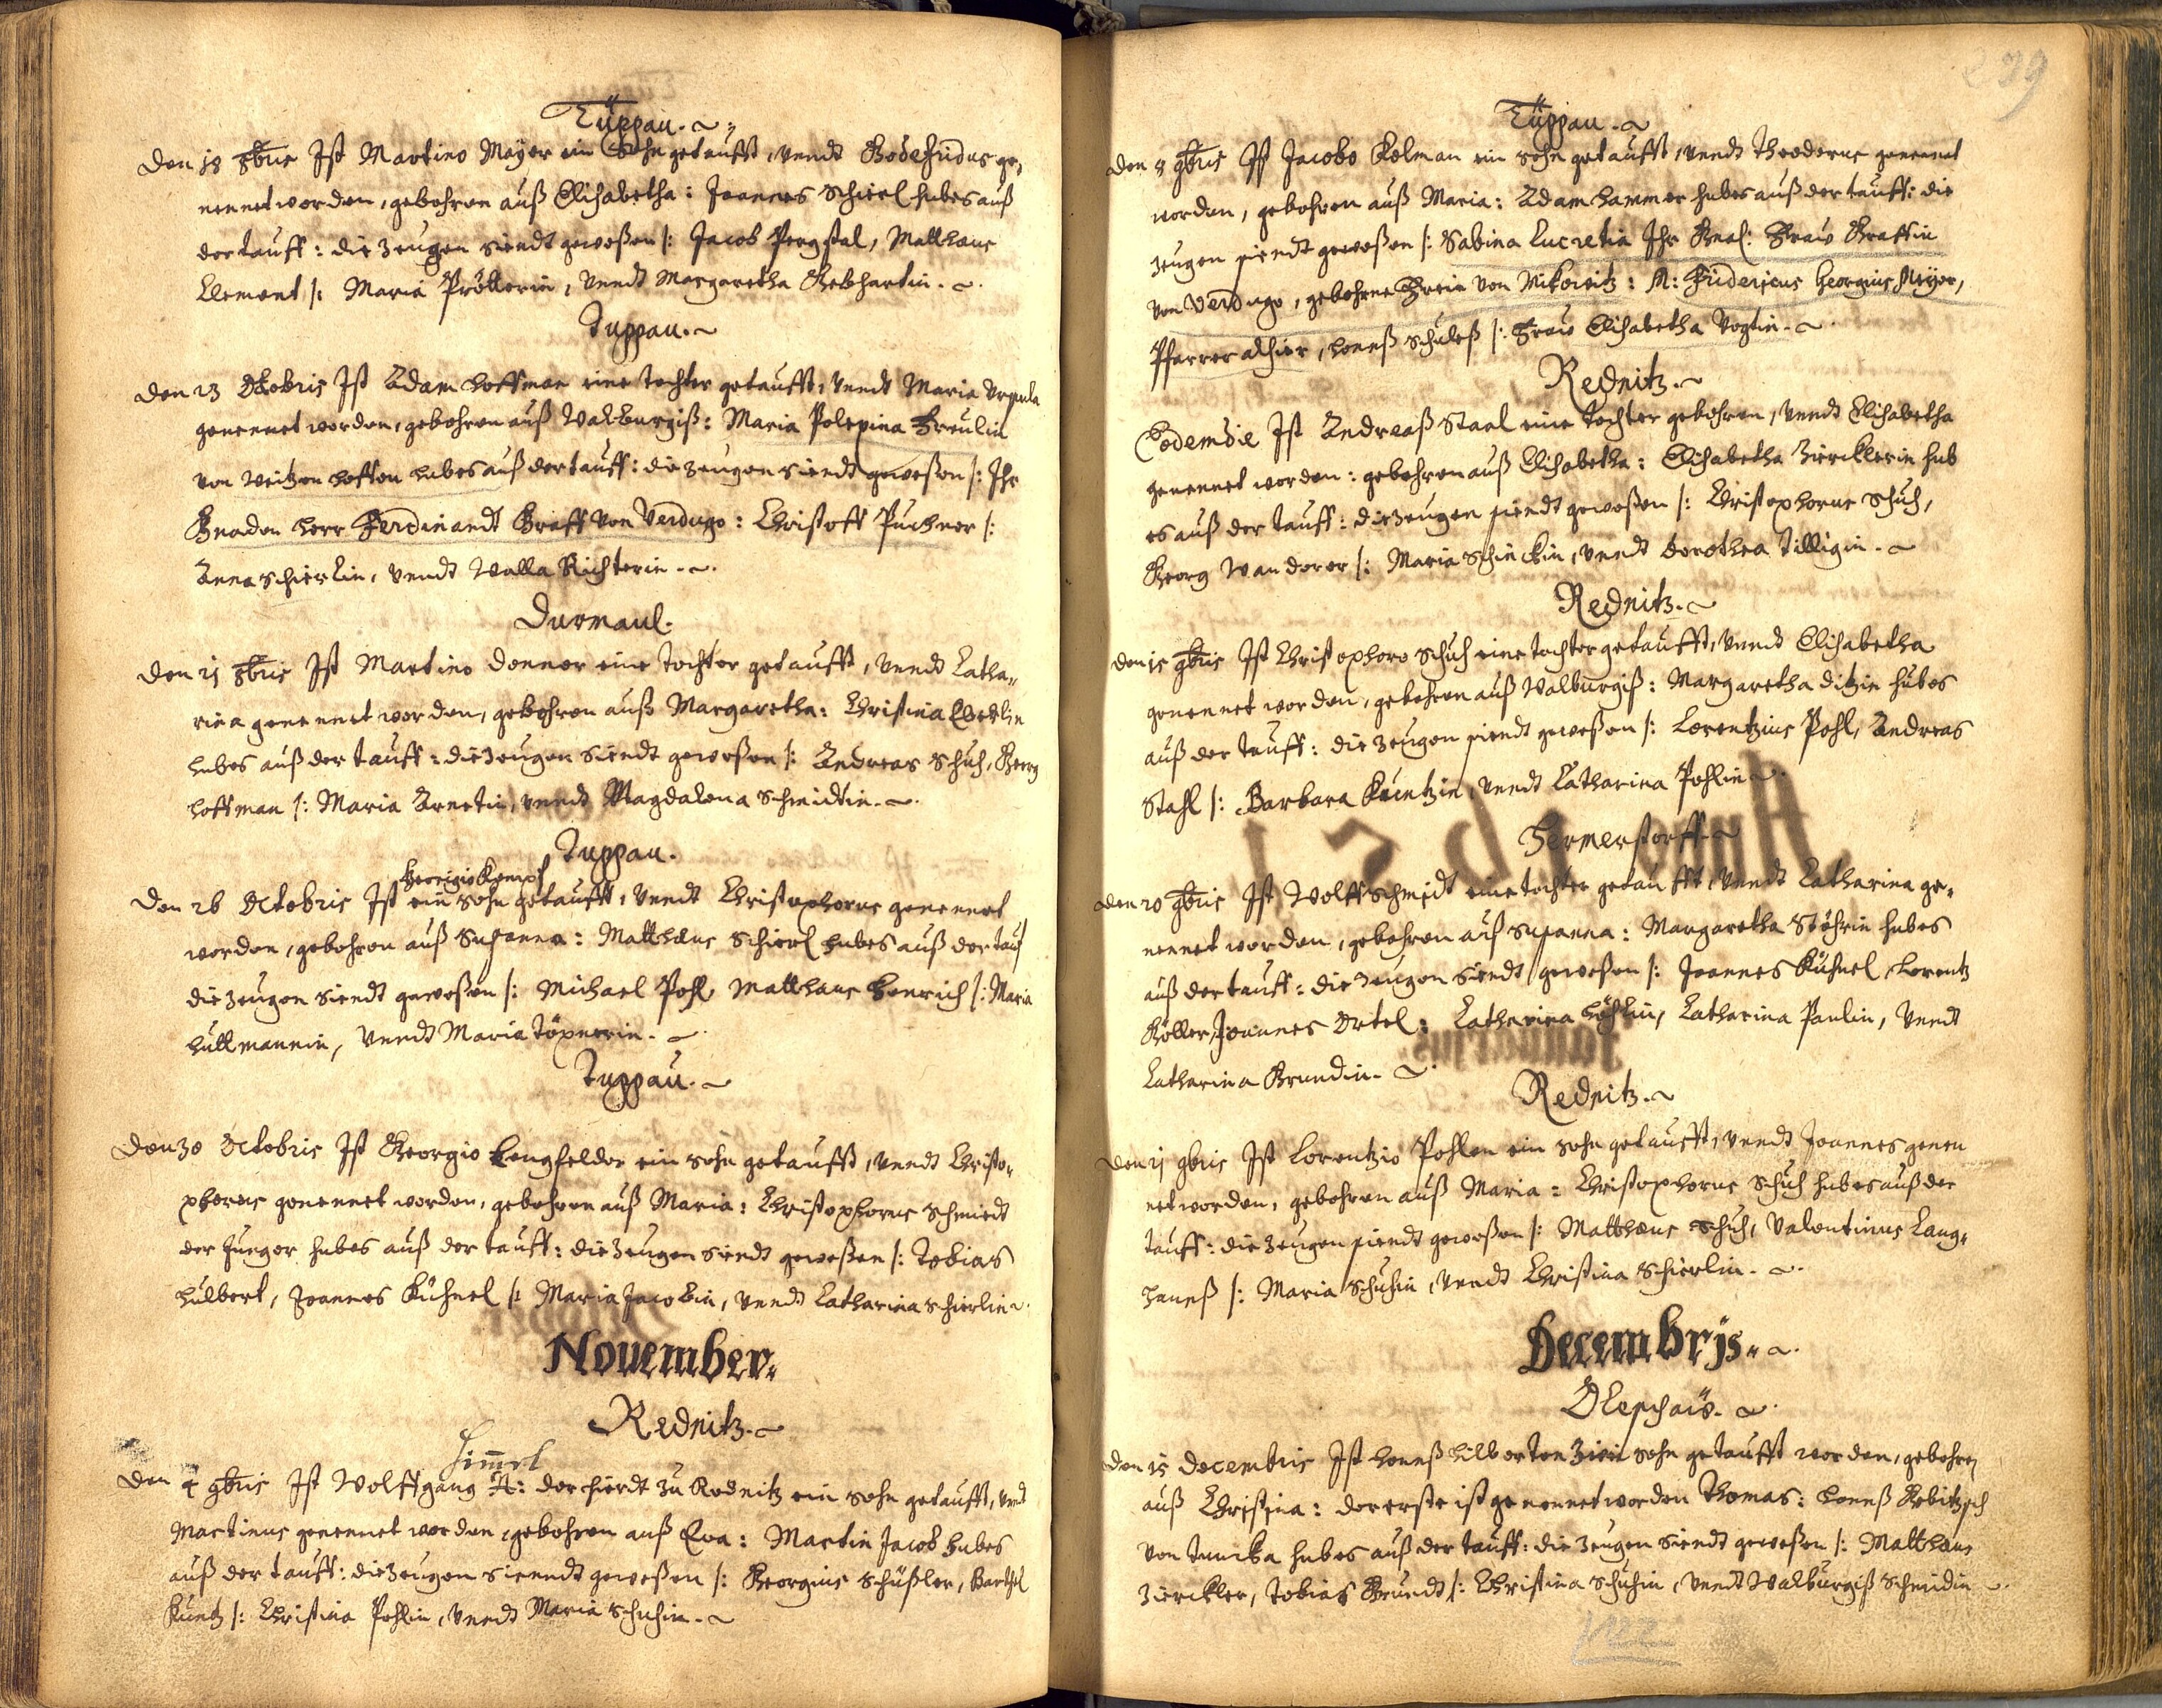 Tüppau.
Den 18 8bris Ist Martino Mayer ein Sohn getaufft, vndt Godefridus ge-
nennet worden, gebohren auß Elisabetha: Joannes Schierl hubes auß
der tauff: die Zeugen siendt geweßen /: Jacob Pergstal, Matthæus
Clement /: Maria Pröllerin, vndt Margaretha Gebhartin.
Tuppau.
Den 23 Octobris Ist Adam Hoffman eine tochter getaufft, vndt Maria Ursula
genennet worden, gebohren auß Walburgiß: Maria Polexina Freulin
von Weitzenhoffen hubes auß der tauff: die zeugen siendt geweßen /: Ihr
Gnaden Herr Ferdinandt Graff von Verdugo: Christoff Puchner /:
Anna Schierlin, vndt Walla Richterin.
Durmaul.
Den 25 8bris Ist Martino Donner eine tochter getaufft, vndt Catha-
rina genennet worden, gebohren auß Margaretha: Christina Eberlin
hubes auß der tauff: die Zeugen siendt geweßen /: Andreas Schuh, Georg
Hoffman /: Maria Arnetin, vndt Magdalena Schmidtin.
Tuppau.
Georigio Kempf
Den 26 Octobris Ist ein sohn getaufft, vndt Christophorus genennet
worden, gebohren auß Susanna: Matthæus Schierl hubes auß der tauf
die Zeugen siendt geweßen /: Michael Pohl, Matthæus Henrich /: Maria
Hüttmannin, vndt Maria Töpnerin.
Tuppau.
Den 30 Octobris Ist Georgio Lengfelder ein sohn getaufft, vndt Christo-
phorus genennet worden, gebohren auß Maria: Christophorus Schmiedt
der Junger hubes auß der tauff: die Zeugen siendt geweßen /: Tobias
Hülbert, Joannes Kühnel /: Maria Jacobin, vndt Catharina Schierlin.
November.
Rednitz.
Himel
Den 4 9bris Ist Wolffgang N: der hierdt zu Rednitz ein sohn getaufft, vndt
Martinus genennet worden, gebohren auß Eva: Martin Jacob hubes
auß der tauff: die Zeugen siendt geweßen /: Georgius Schüßler, Barthl
Küntz /: Christina Pohlin, vndt Maria Schuhin.
239
Tüppau.
Den 8 9bris Ist Jacobo Kolman ein sohn getaufft, vndt Theoderus genennet
worden, gebohren auß Maria: Adam Hammer hubes auß der tauff: die
Zeugen siendt geweßen /: Sabina Lucretia Ihr Gnal: Fraw Graffin
von Verdugo, gebohrne Frein von Mikowitz: N: Fridericus Georgius Meyer,
Pfarrer alhier, Hanß Schuleß /: Fraw Elisabetha Vogtin.
Rednitz.
Eodem die Ist Andreaß Staal eine tochter gebohren, vndt Elisabetha
genennet worden: gebohren auß Elisabetha: Elisabetha Zircklerin hub
es auß der tauff: die zeugen siendt geweßen /: Christophorus Schuh,
Georg Wanderer /: Maria Schinckin, vndt Dorothea Tilligin.
Rednitz.
Den 15 9bris Ist Christophoro Schuh eine tochter getaufft, vndt Elisabetha
genennet worden, gebohren auß Walburgiß: Margaretha Ditzin hubes
auß der tauff: die Zeugen siendt geweßen /: Lorentzius Pohl, Andreas
Stahl /: Barbara Küntzin, vndt Catharina Pohlin.
Hermerstorff.
Den 20 9bris Ist Wolff Schmidt eine tochter getaufft, vndt Catharina ge-
nennet worden, gebohren auß Susanna: Margaretha Stöhrin hubes
auß der tauff: die Zeugen siendt geweßen /: Joannes Kühnel, Lorentz
Köller, Joannes Ortel: Catharina Höhlin, Catharina Paulin, vndt
Catharina Grundin.
Rednitz.
Den 25 9bris Ist Lorentzio Pohlen ein sohn getaufft, vndt Joannes genen
net worden, gebohren auß Maria: Christophorus Schuh hubes auß der
tauff: die Zeugen siendt geweßen /: Matthæus Schuh, Valentinus Lang-
Hanß /: Maria Schuhin, vndt Christina Schierlin.
Decembrjs.
Olepchaw.
Den 15 Decembris Ist Hanß Hilberten Zwei sohn getaufft worden, gebohren
auß Christina: der erste ist genennet worden Thomas: Hanß Kobitzsch
von Turcka hubes auß der tauff: die Zeugen siendt geweßen /: Matthæus
Zirckler, Tobias Grundt /: Christina Schuhin, vndt Walburgiß Schmidin